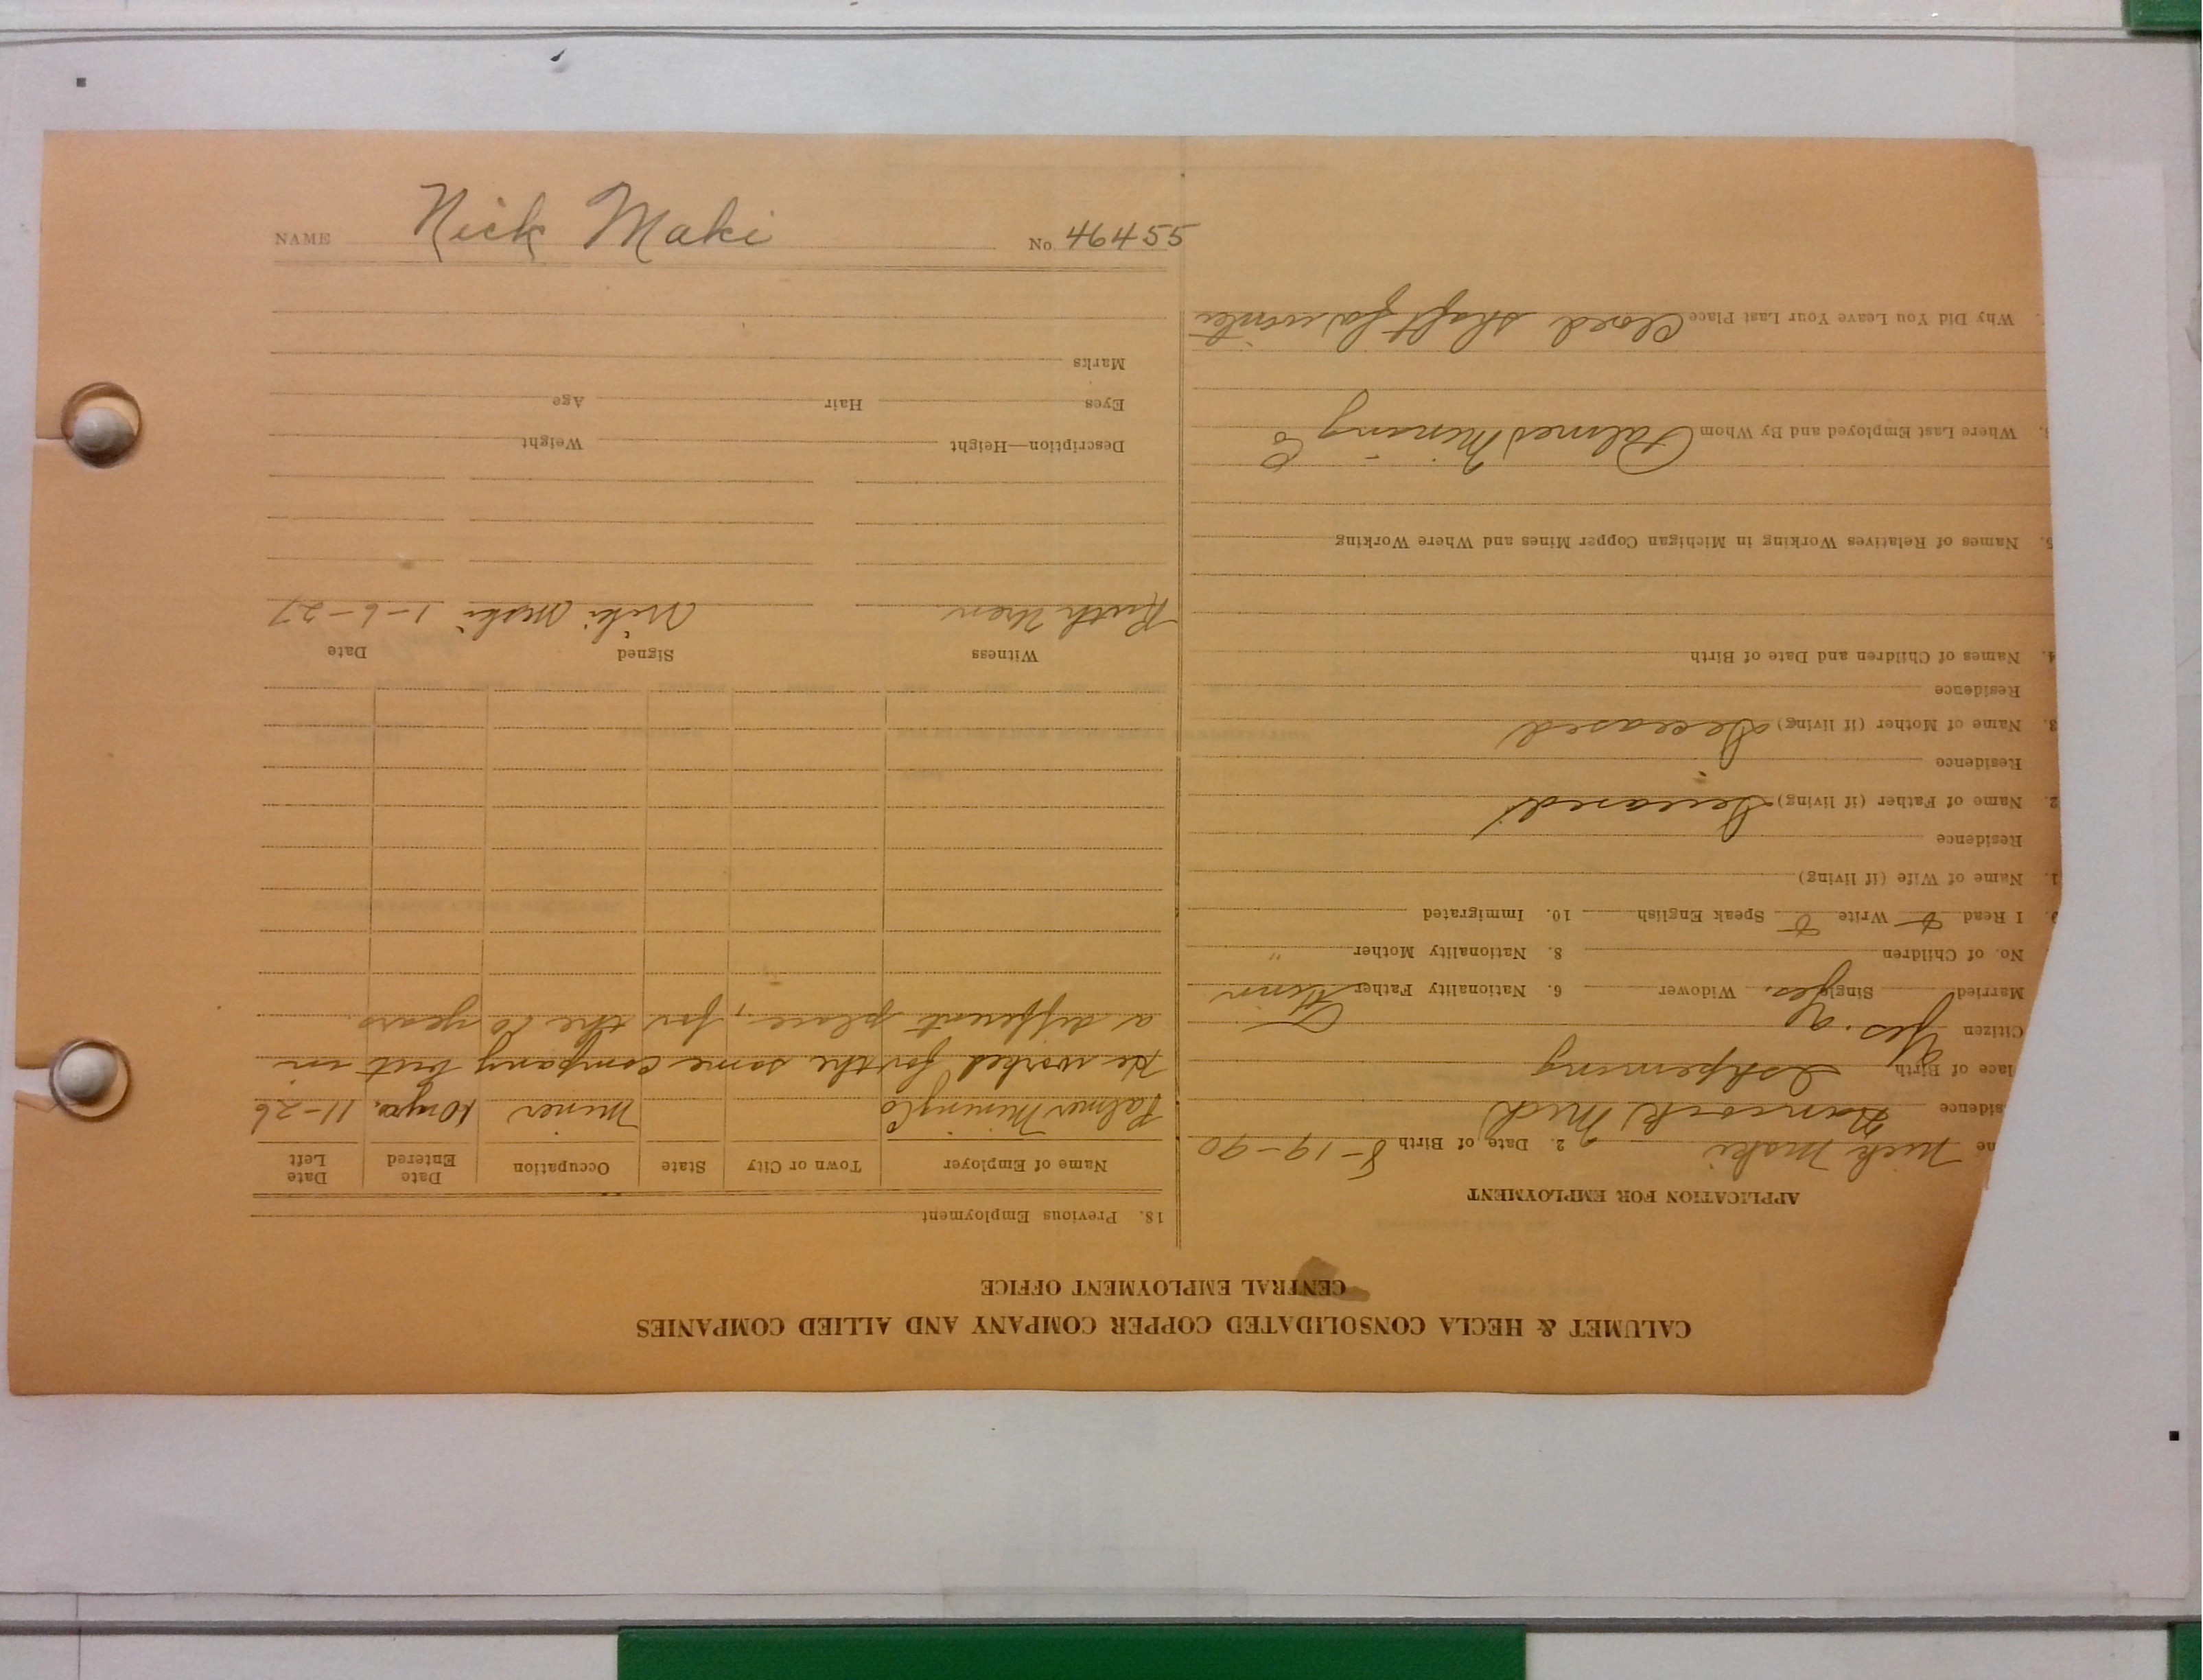 NAME Nick Maki No. 46455
CALUMET & HECLA CONSOLIDATED COPPER COMPANY AND ALLIED COMPANIES
CENTRAL EMPLOYMENT OFFICE
APPLICATION FOR EMPLOYMENT
me Nick Maki 2. Date of Birth 8-19-90
sidence Hancock Mich
lace of Birth Ishpeming
Citizen Yes.
Married Single yes. Widower 6. Nationality Father Finn
No. of Children 8. Nationality Mother "
9. I Read Write Speak English 10. Immigrated
1. Name of Wife (if living)
Residence
2. Name of Father (if living) Deceased
Residence
3. Name of Mother (if living) Deceased
Residence
4. Names of Children and Date of Birth
5. Names of Relatives Working in Michigan Copper Mines and Where Working
Where Last Employed and By Whom Palmer Mining Co
Why Did You Leave Your Last Place Closed shaft for winter
18. Previous Employment
Name of Employer Town or City State Occupation Date Entered Date Left
Palmer Mining Co Miner 10 yrs. 11-26
He worked for the same company but in
a different place, for the 10 years.
Witness Signed Date
Ruth Uren Nick Maki 1-6-27
Description—Height Weight
Eyes Hair Age
Marks